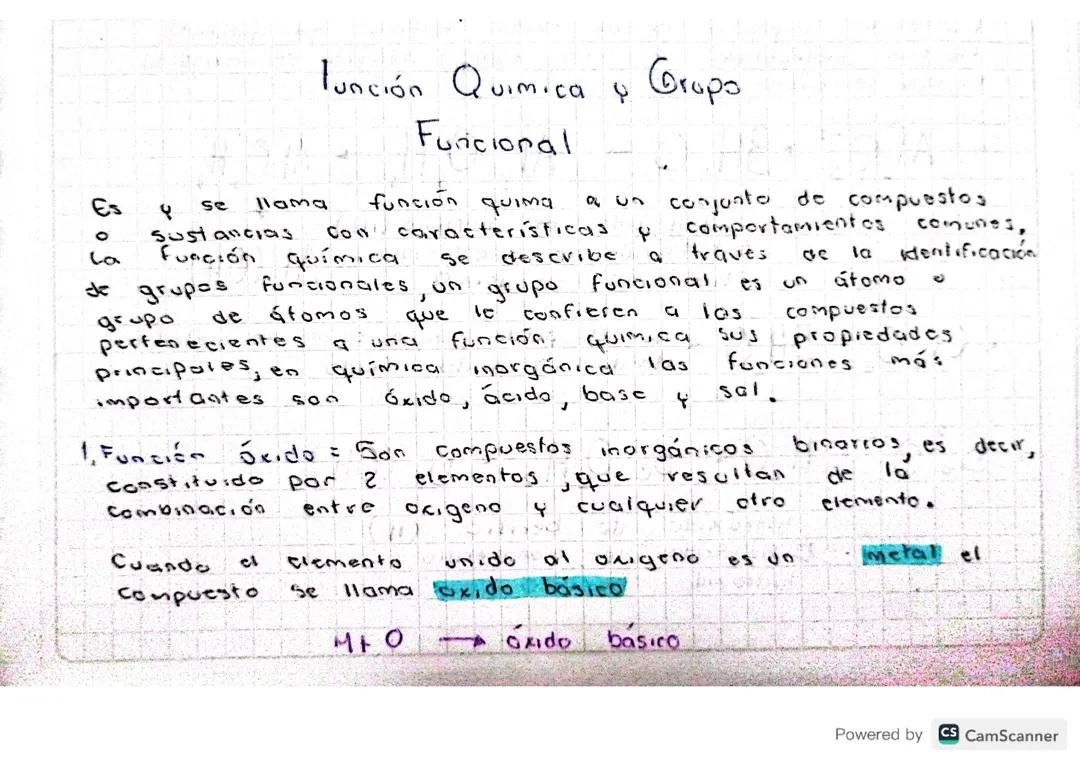 Función Quimica y Grupo
Funcional
Es y se llama función quima a un conjunto de compuestos
o sustancias con características y comportamientos comunes,
La función química se describe a través de la identificación
de grupos funcionales, un grupo funcional es un átomo o
grupo de átomos que le confieren a los compuestos
pertenecientes a una función química sus propiedades
principales, en química inorgánica las funciones más
importantes son óxido, ácido, base y sal.
1. Función óxido = Son compuestos inorgánicos binarios, es decir,
constituido por 2 elementos, que resultan de la
combinación entre oxigeno y cualquier otro elemento.
Cuando el elemento unido al oxigeno es un metal el
compuesto se llama oxido básico
M + O → óxido básico
Powered by CS CamScanner